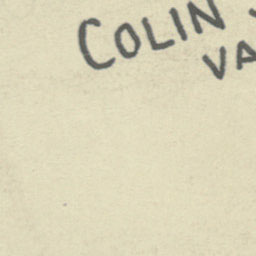 COLIN
VA